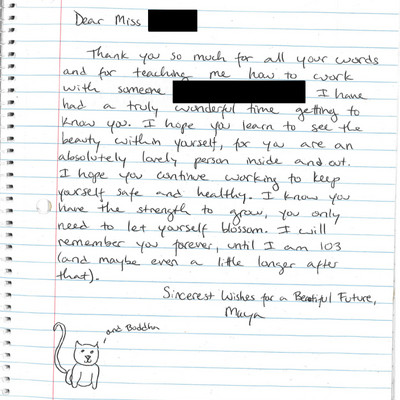 Dear Miss
Thank you so much for all your words
and for teaching me how to work
with someone I have
had a truly wonderful time getting to
know you. I hope you learn to see the
beauty within yourself, for you are an
absolutely lovely person inside and out.
I hope you continue working to keep
yourself safe and healthy. I know you
have the strength to grow, you only
need to let yourself blossom. I will
remember you forever, until I am 103
(and maybe even a little longer after
that).
Sincerest Wishes for a Beautiful Future,
Maya
and Buddha